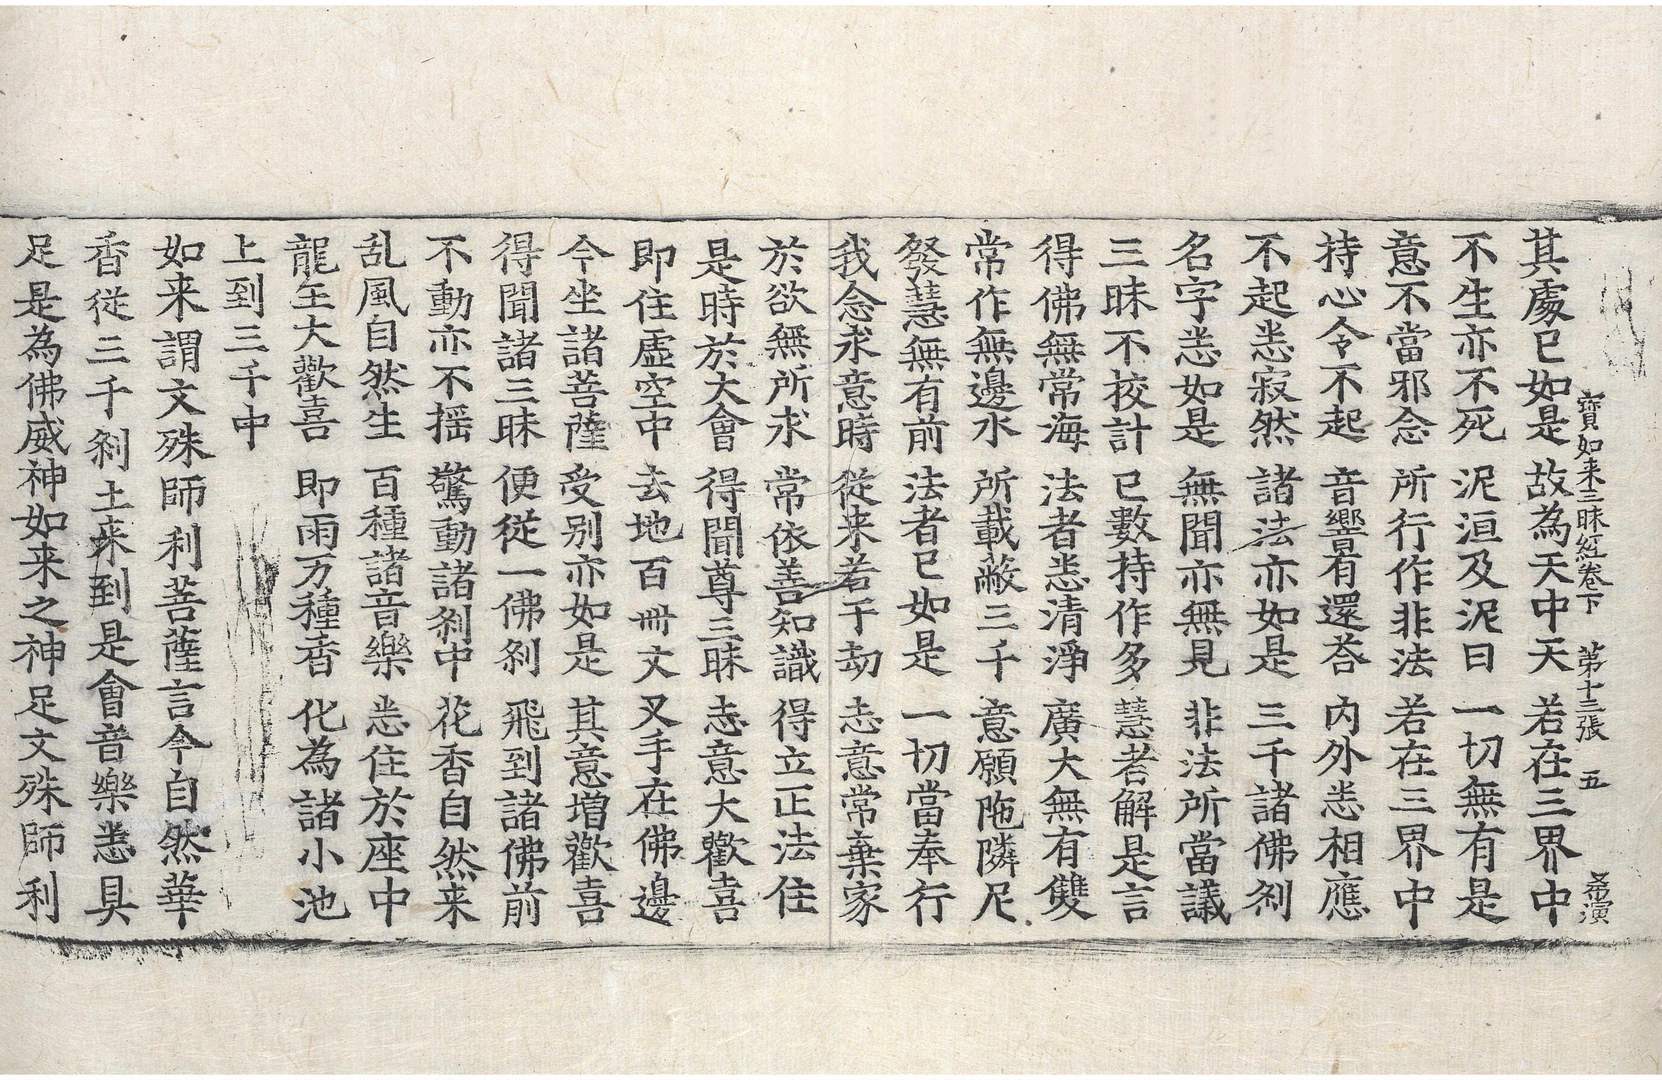 寶如来三昧経卷下 第十三張 五 希演
其處已如是 故為天中天 若在三界中
不生亦不死 泥洹及泥曰 一切無有是
意不當邪念 所行作非法 若在三界中
持心令不起 音響有還荅 内外悉相應
不起悉寂然 諸法亦如是 三千諸佛剎
名字悉如是 無聞亦無見 非法所當議
三昧不挍計 已數持作多 慧者解是言
得佛無常海 法者悉清淨 廣大無有雙
常作無邊水 所載蔽三千 意願陁隣尼
發慧無有前 法者已如是 一切當奉行
我念求意時 從来若干劫 志意常棄家
於欲無所求 常依善知識 得立正法住
是時於大會 得聞尊三昧 志意大歡喜
即住虛空中 去地百卌丈 叉手在佛邊
今坐諸菩薩 受别亦如是 其意增歡喜
得聞諸三昧 便從一佛剎 飛到諸佛前
不動亦不摇 驚動諸剎中 花香自然来
乱風自然生 百種諸音樂 悉住於座中
龍王大歡喜 即雨万種香 化為諸小池
上到三千中
如来謂文殊師利菩薩言今自然華
香從三千剎土来到是會音樂悉具
足是為佛威神如来之神足文殊師利